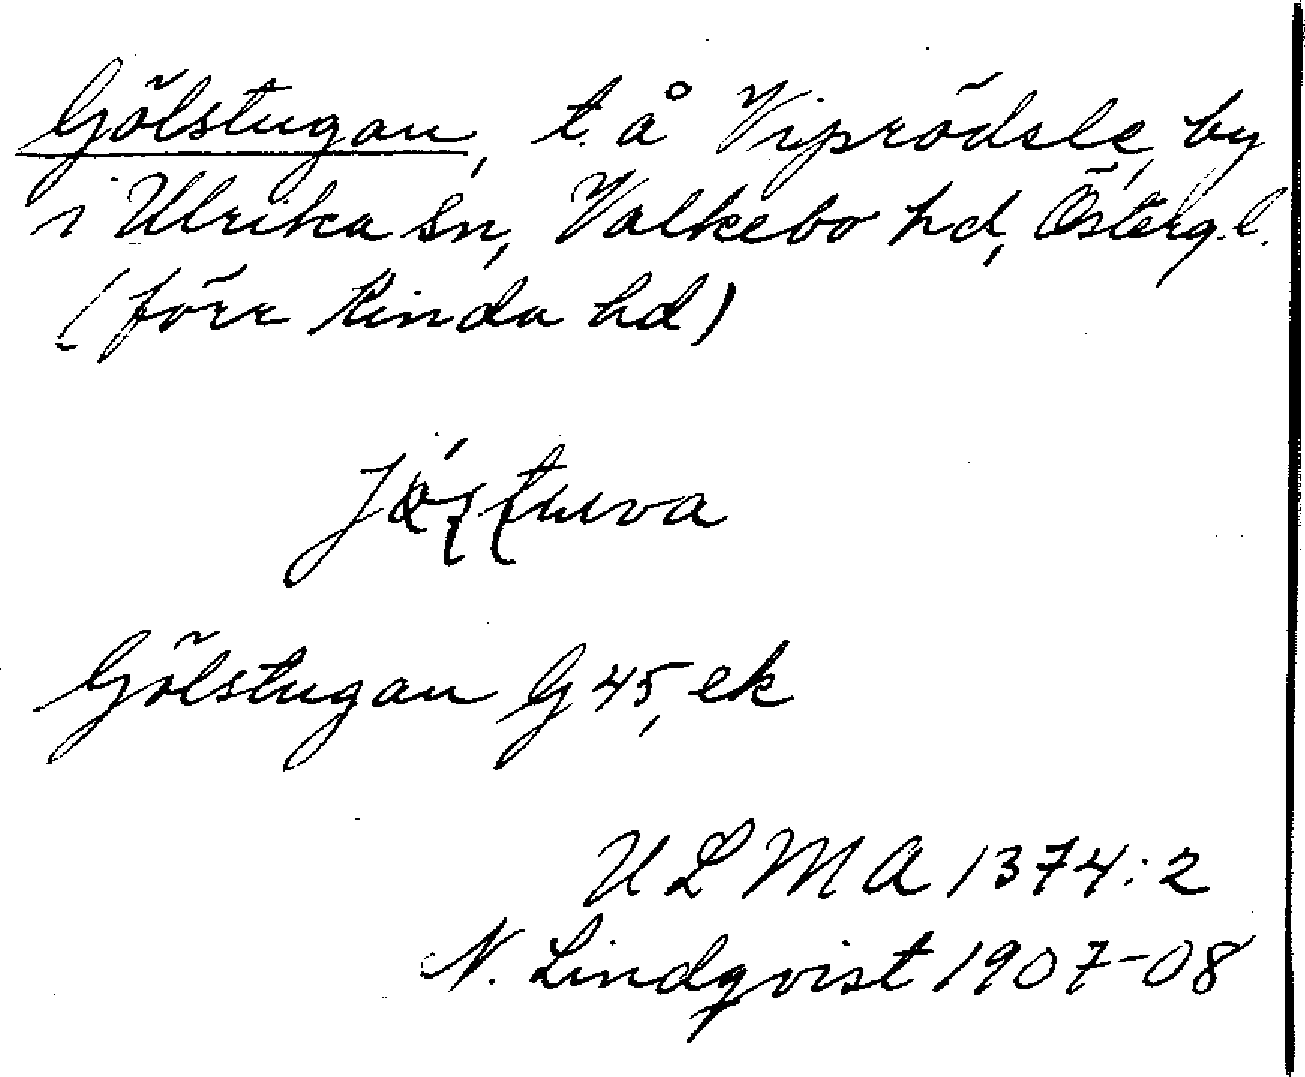 Gölstugan, t. å Viprödsle, by
i Ulrika sn, Valkebo hd, Östergl.
(förr Kinda hd)
Gölstugan G 45, ek
ULMA 1374:2
N. Lindqvist 1907-08